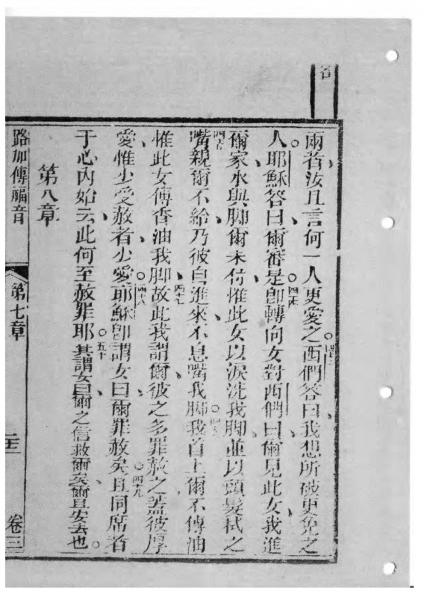 兩者汝且言何一人更愛之西們答曰我想所被更免之
人耶穌答曰爾審是卽轉向女對西們曰爾見此女我進
爾家水與脚爾未付惟此女以淚洗我脚並以頭髮拭之
嘴親爾不給乃彼自進來不息嘴我脚我首上爾不傅油
惟此女傅香油我脚故此我謂爾彼之多罪赦之蓋彼厚
愛惟少受赦者少愛耶穌卽謂女曰爾罪赦矣且同席者
于心內始云此何至赦罪耶其謂女曰爾之信救爾矣爾且安去也
四三
四四
四五
四六
四七
四八
四九
五十
第八章
路加傳福音
第七章
卷三